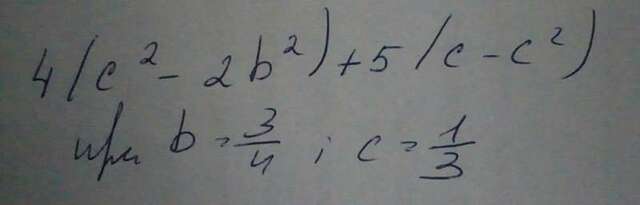 4(c² - 2b²) + 5(c - c²)
при b = 3/4 ; c = 1/3